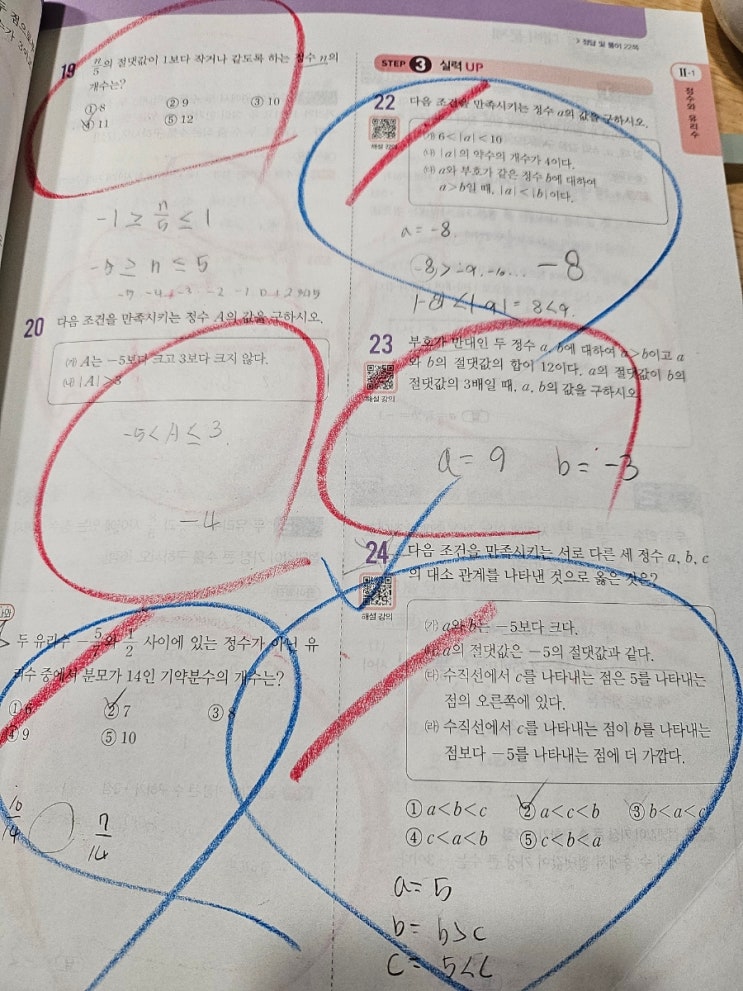 > 정답 및 풀이 22쪽
II-1
정수와 유리수
19 n/5의 절댓값이 1보다 작거나 같도록 하는 정수 n의
개수는?
① 8 ② 9 ③ 10
④ 11 ⑤ 12
-1 ≥ n/5 ≤ 1
-5 ≥ n ≤ 5
20 다음 조건을 만족시키는 정수 A의 값을 구하시오.
㈎ A는 -5보다 크고 3보다 크지 않다.
㈏ |A|>3
-5<A≤3.
-4
두 유리수 와 1/2 사이에 있는 정수가 아닌 유
리수 중에서 분모가 14인 기약분수의 개수는?
① 6 ② 7 ③ 8
④ 9 ⑤ 10
10/14 7/14
STEP 3 실력 UP
22 다음 조건을 만족시키는 정수 a의 값을 구하시오.
해설 강의
㈎ 6<|a|<10
㈏ |a|의 약수의 개수가 4이다.
㈐ a와 부호가 같은 정수 b에 대하여
a>b일 때, |a|<|b|이다.
a=-8
-8>-9, -10... -8
|-8|<|-9| = 8<9.
23 부호가 반대인 두 정수 a, b에 대하여 a>b이고 a
와 b의 절댓값의 합이 12이다. a의 절댓값이 b의
절댓값의 3배일 때, a, b의 값을 구하시오.
해설 강의
a=9 b=-3
24 다음 조건을 만족시키는 서로 다른 세 정수 a, b, c
의 대소 관계를 나타낸 것으로 옳은 것은?
해설 강의
㈎ a와 b는 -5보다 크다.
㈏ a의 절댓값은 -5의 절댓값과 같다.
㈐ 수직선에서 c를 나타내는 점은 5를 나타내는
점의 오른쪽에 있다.
㈑ 수직선에서 c를 나타내는 점이 b를 나타내는
점보다 -5를 나타내는 점에 더 가깝다.
① a<b<c ② a<c<b ③ b<a<c
④ c<a<b ⑤ c<b<a
a=5
b= b>c
c= 5<c